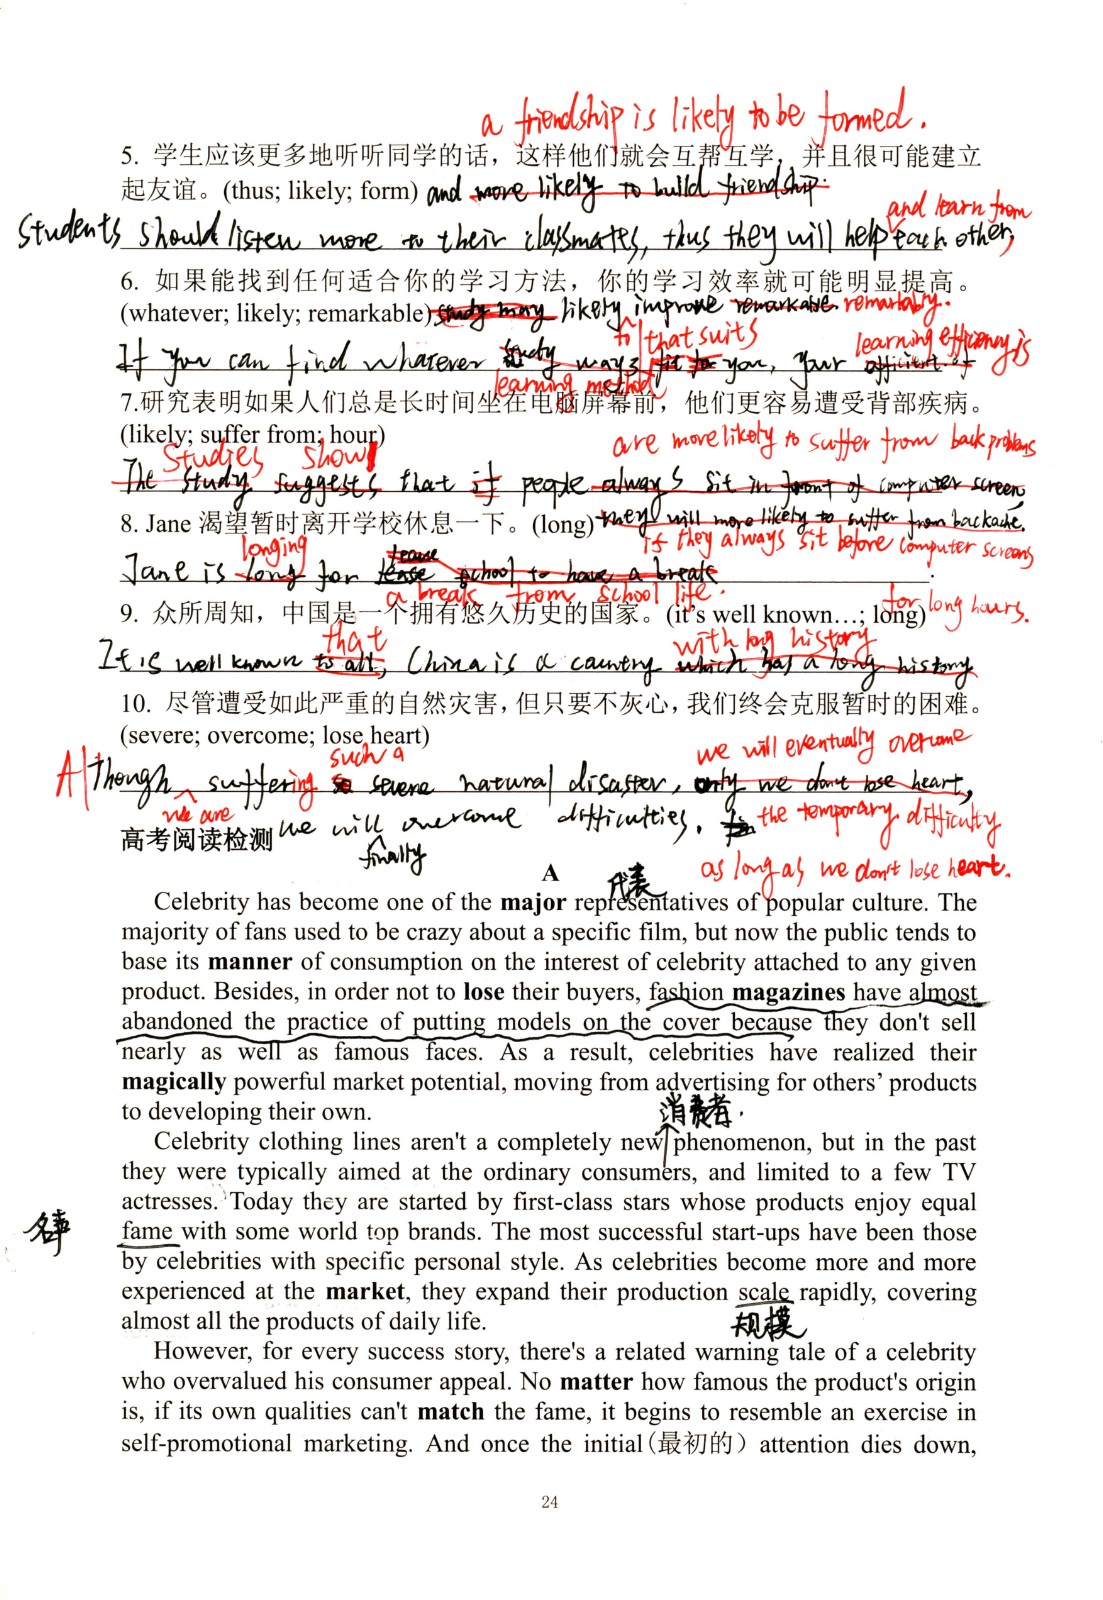 a friendship is likely to be formed.
5. 学生应该更多地听听同学的话，这样他们就会互帮互学，并且很可能建立
起友谊。(thus; likely; form) and more likely to build friendship.
and learn from
Students should listen more to their classmates, thus they will help each other,
6. 如果能找到任何适合你的学习方法，你的学习效率就可能明显提高。
(whatever; likely; remarkable) study may likely improve remarkable. remarkably.
to that suits learning efficiency is
If you can find whatever study ways fit to you, your efficient if
learning method
7.研究表明如果人们总是长时间坐在电脑屏幕前，他们更容易遭受背部疾病。
(likely; suffer from; hour) are more likely to suffer from back problems
Studies show
The study suggests that if people always sit in front of computer screen,
8. Jane 渴望暂时离开学校休息一下。(long) they will more likely to suffer from backache.
longing if they always sit before computer screens
Jane is long for lease school to have a break
a break from school life. for long hours.
9. 众所周知，中国是一个拥有悠久历史的国家。(it's well known…; long)
that with long history
It is well known to all, China is a country which has a long history
10. 尽管遭受如此严重的自然灾害，但只要不灰心，我们终会克服暂时的困难。
(severe; overcome; lose heart)
such a we will eventually overcome
Although suffering so severe natural disaster, only we don't lose heart,
we are the temporary difficulty
高考阅读检测 we will overcome difficulties.
finally as long as we don't lose heart.
A
代表
Celebrity has become one of the major representatives of popular culture. The
majority of fans used to be crazy about a specific film, but now the public tends to
base its manner of consumption on the interest of celebrity attached to any given
product. Besides, in order not to lose their buyers, fashion magazines have almost
abandoned the practice of putting models on the cover because they don't sell
nearly as well as famous faces. As a result, celebrities have realized their
magically powerful market potential, moving from advertising for others' products
to developing their own.
消费者.
Celebrity clothing lines aren't a completely new phenomenon, but in the past
they were typically aimed at the ordinary consumers, and limited to a few TV
actresses. Today they are started by first-class stars whose products enjoy equal
名声
fame with some world top brands. The most successful start-ups have been those
by celebrities with specific personal style. As celebrities become more and more
experienced at the market, they expand their production scale rapidly, covering
almost all the products of daily life.
规模
However, for every success story, there's a related warning tale of a celebrity
who overvalued his consumer appeal. No matter how famous the product's origin
is, if its own qualities can't match the fame, it begins to resemble an exercise in
self-promotional marketing. And once the initial(最初的) attention dies down,
24